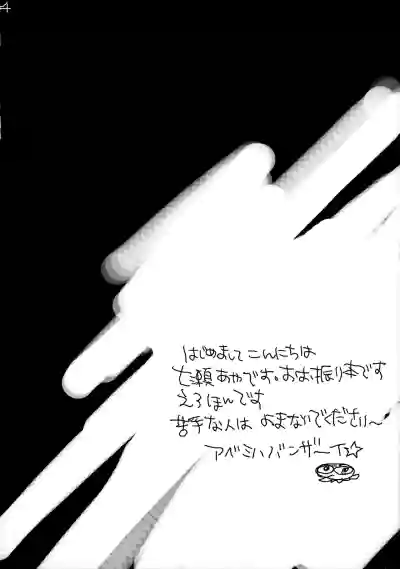 4
はじめまして こんにちは
七瀬あやです。おお振り本です
えろほんです
苦手な人は よまないでください~
アベミハバンザーイ☆